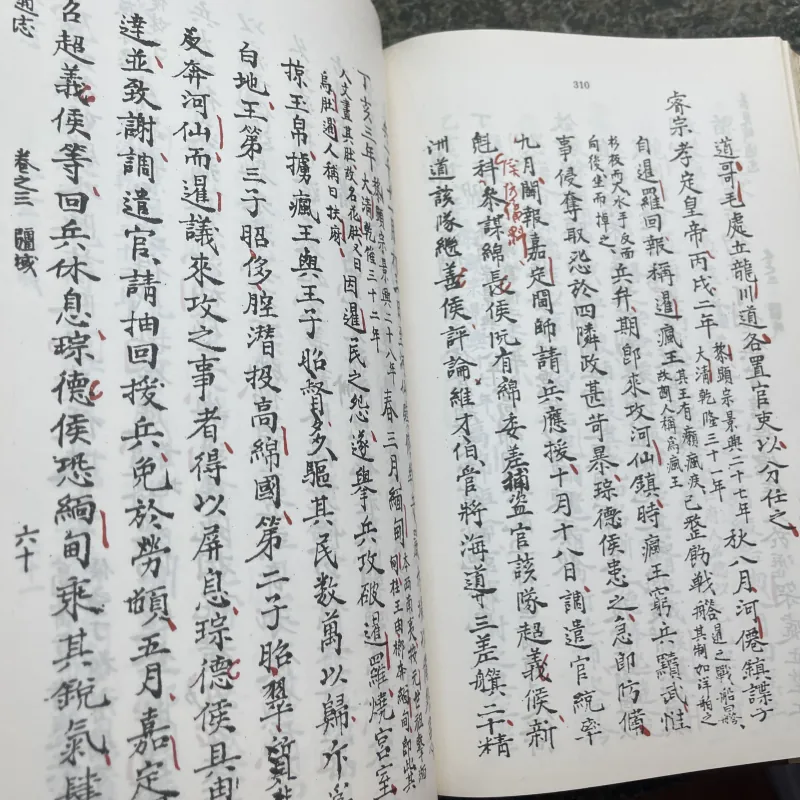 310
道哥毛處立龍川道各置官吏以分任之
睿宗孝定皇帝丙戌二年黎顯宗景興二十七年大清乾隆三十一年秋八月河僊鎮諜子
自暹羅回報稱暹瘋王其王有癩瘋疾故調人稱爲瘋王已整飭戰艦暹之戰船船其制如洋舶之
杉板兩大水手反面向後坐而掉之兵弁期卽來攻河仙鎮時瘋王窮兵黷武性
事侵奪取怨於四隣政甚苛暴琮德侯患之急卽防備
九月聞報嘉定閫師請兵應援十月十八日調遣官統率
侯防偏科
魁科參謀綿長侯阮有綿委差捕盜官該隊超義侯新
洲道該隊繼善侯評論維才伯管將海道三差艤二十精
丁亥三年黎顯宗景興二十八年大清乾隆三十二年春三月緬甸
人文畫其肚故名花肚又曰烏肚暹人稱曰扶麻因暹民之怨遂擧兵攻破暹羅燒宮室
掠玉帛擄瘋王與王子昭督多驅其民數萬以歸
白地王第三子昭侈腔潛投高綿國第二子昭翠質
奔河仙而暹議來攻之事者得以屏息琮德侯具
達並致謝調遣官請抽回援兵免於勞頓五月嘉定
超義侯等回兵休息琮德侯恐緬甸乘其銳氣肆
通志 卷之三 疆域 六十